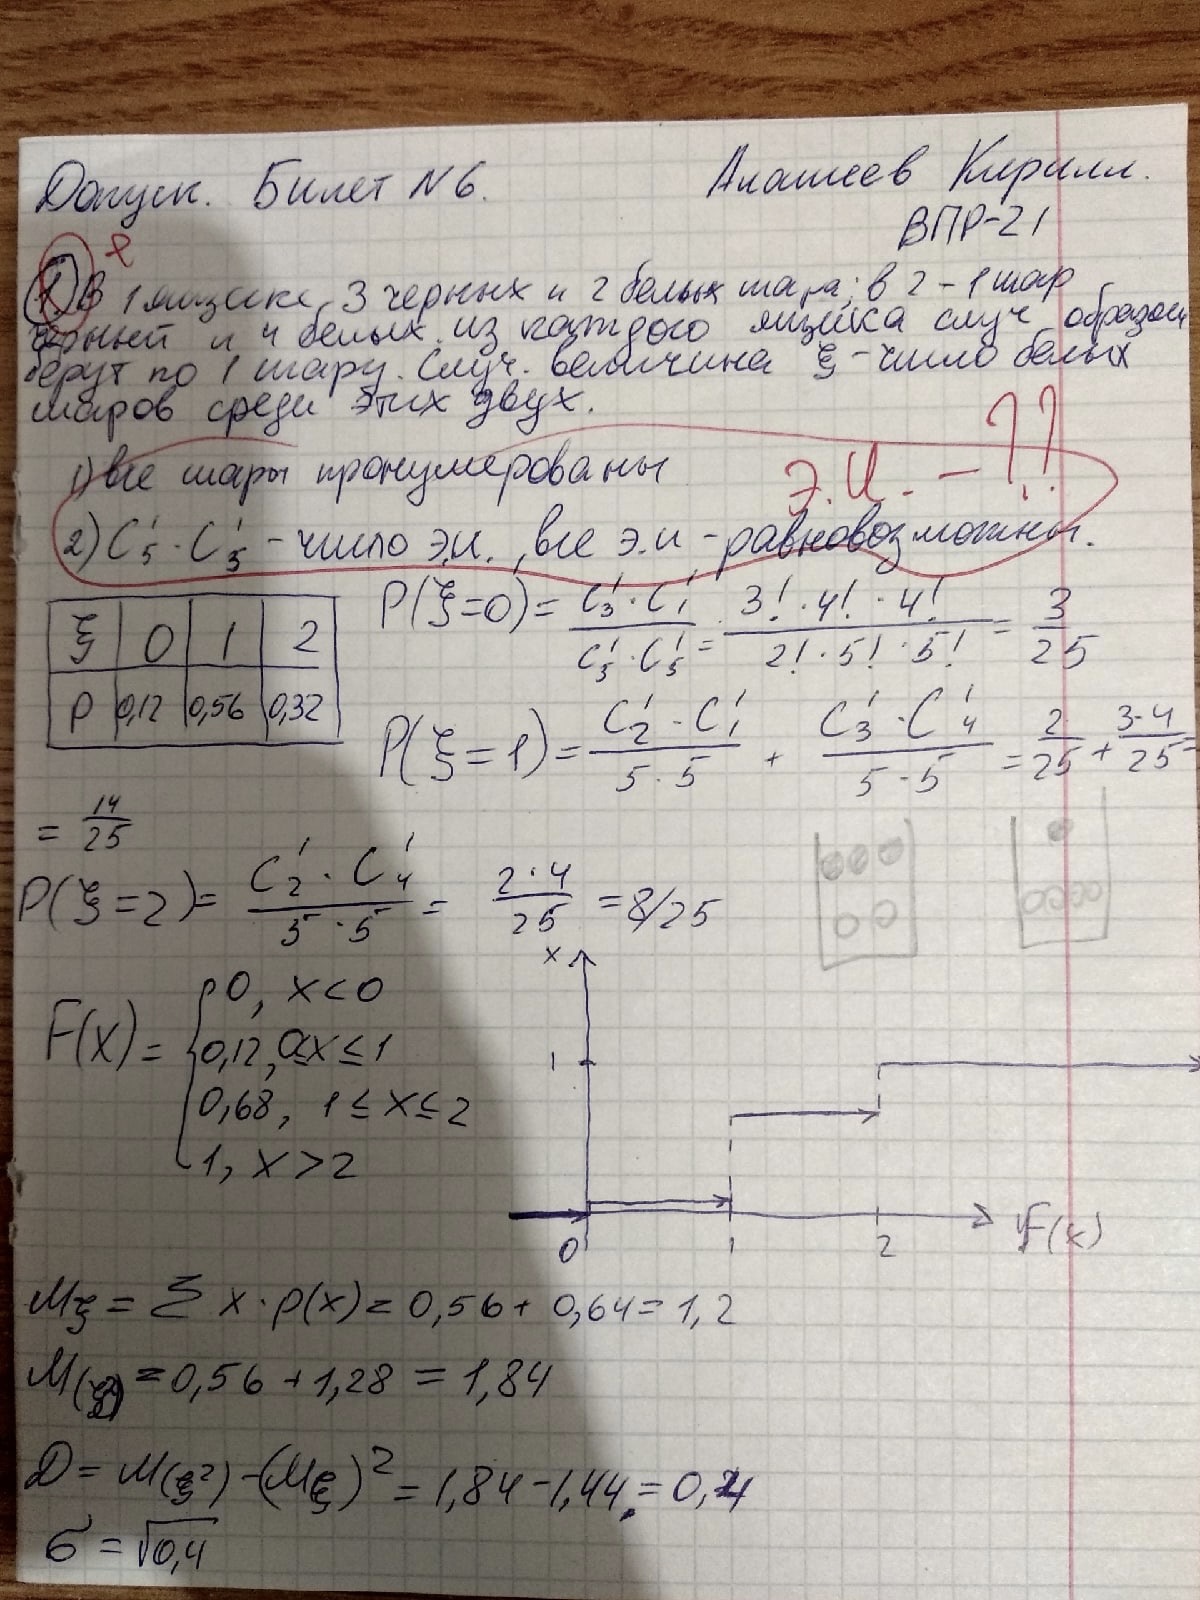 Допуск. Билет N 6.
Апатеев Кирилл.
ВПР-21
1) В 1 ящике 3 черных и 2 белых шара; в 2 - 1 шар
черный и 4 белых. из каждого ящика случ образом
берут по 1 шару. Случ. величина ξ - число белых
шаров среди этих двух.
1) все шары пронумерованы
Э.И. - ??
2) C₅¹ · C₅¹ - число э.и., все э.и - равновозможны.
ξ | 0 | 1 | 2
P | 0,12 | 0,56 | 0,32
P(ξ=0) = (C₃¹ · C₁¹)/(C₅¹ · C₅¹) = (3! · 4! · 4!)/(2! · 5! · 5!) = 3/25
P(ξ=1) = (C₂¹ · C₁¹)/(5 · 5) + (C₃¹ · C₄¹)/(5 · 5) = 2/25 + (3·4)/25 =
= 14/25
P(ξ=2) = (C₂¹ · C₄¹)/(5 · 5) = (2·4)/25 = 8/25
F(x) = { 0, x<0
0,12, 0≤x≤1
0,68, 1≤x≤2
1, x>2
x
1
0 1 2 F(x)
Mξ = Σ x·p(x) = 0,56 + 0,64 = 1,2
M(ξ²) = 0,56 + 1,28 = 1,84
D = M(ξ²) - (Mξ)² = 1,84 - 1,44 = 0,4
σ = √0,4